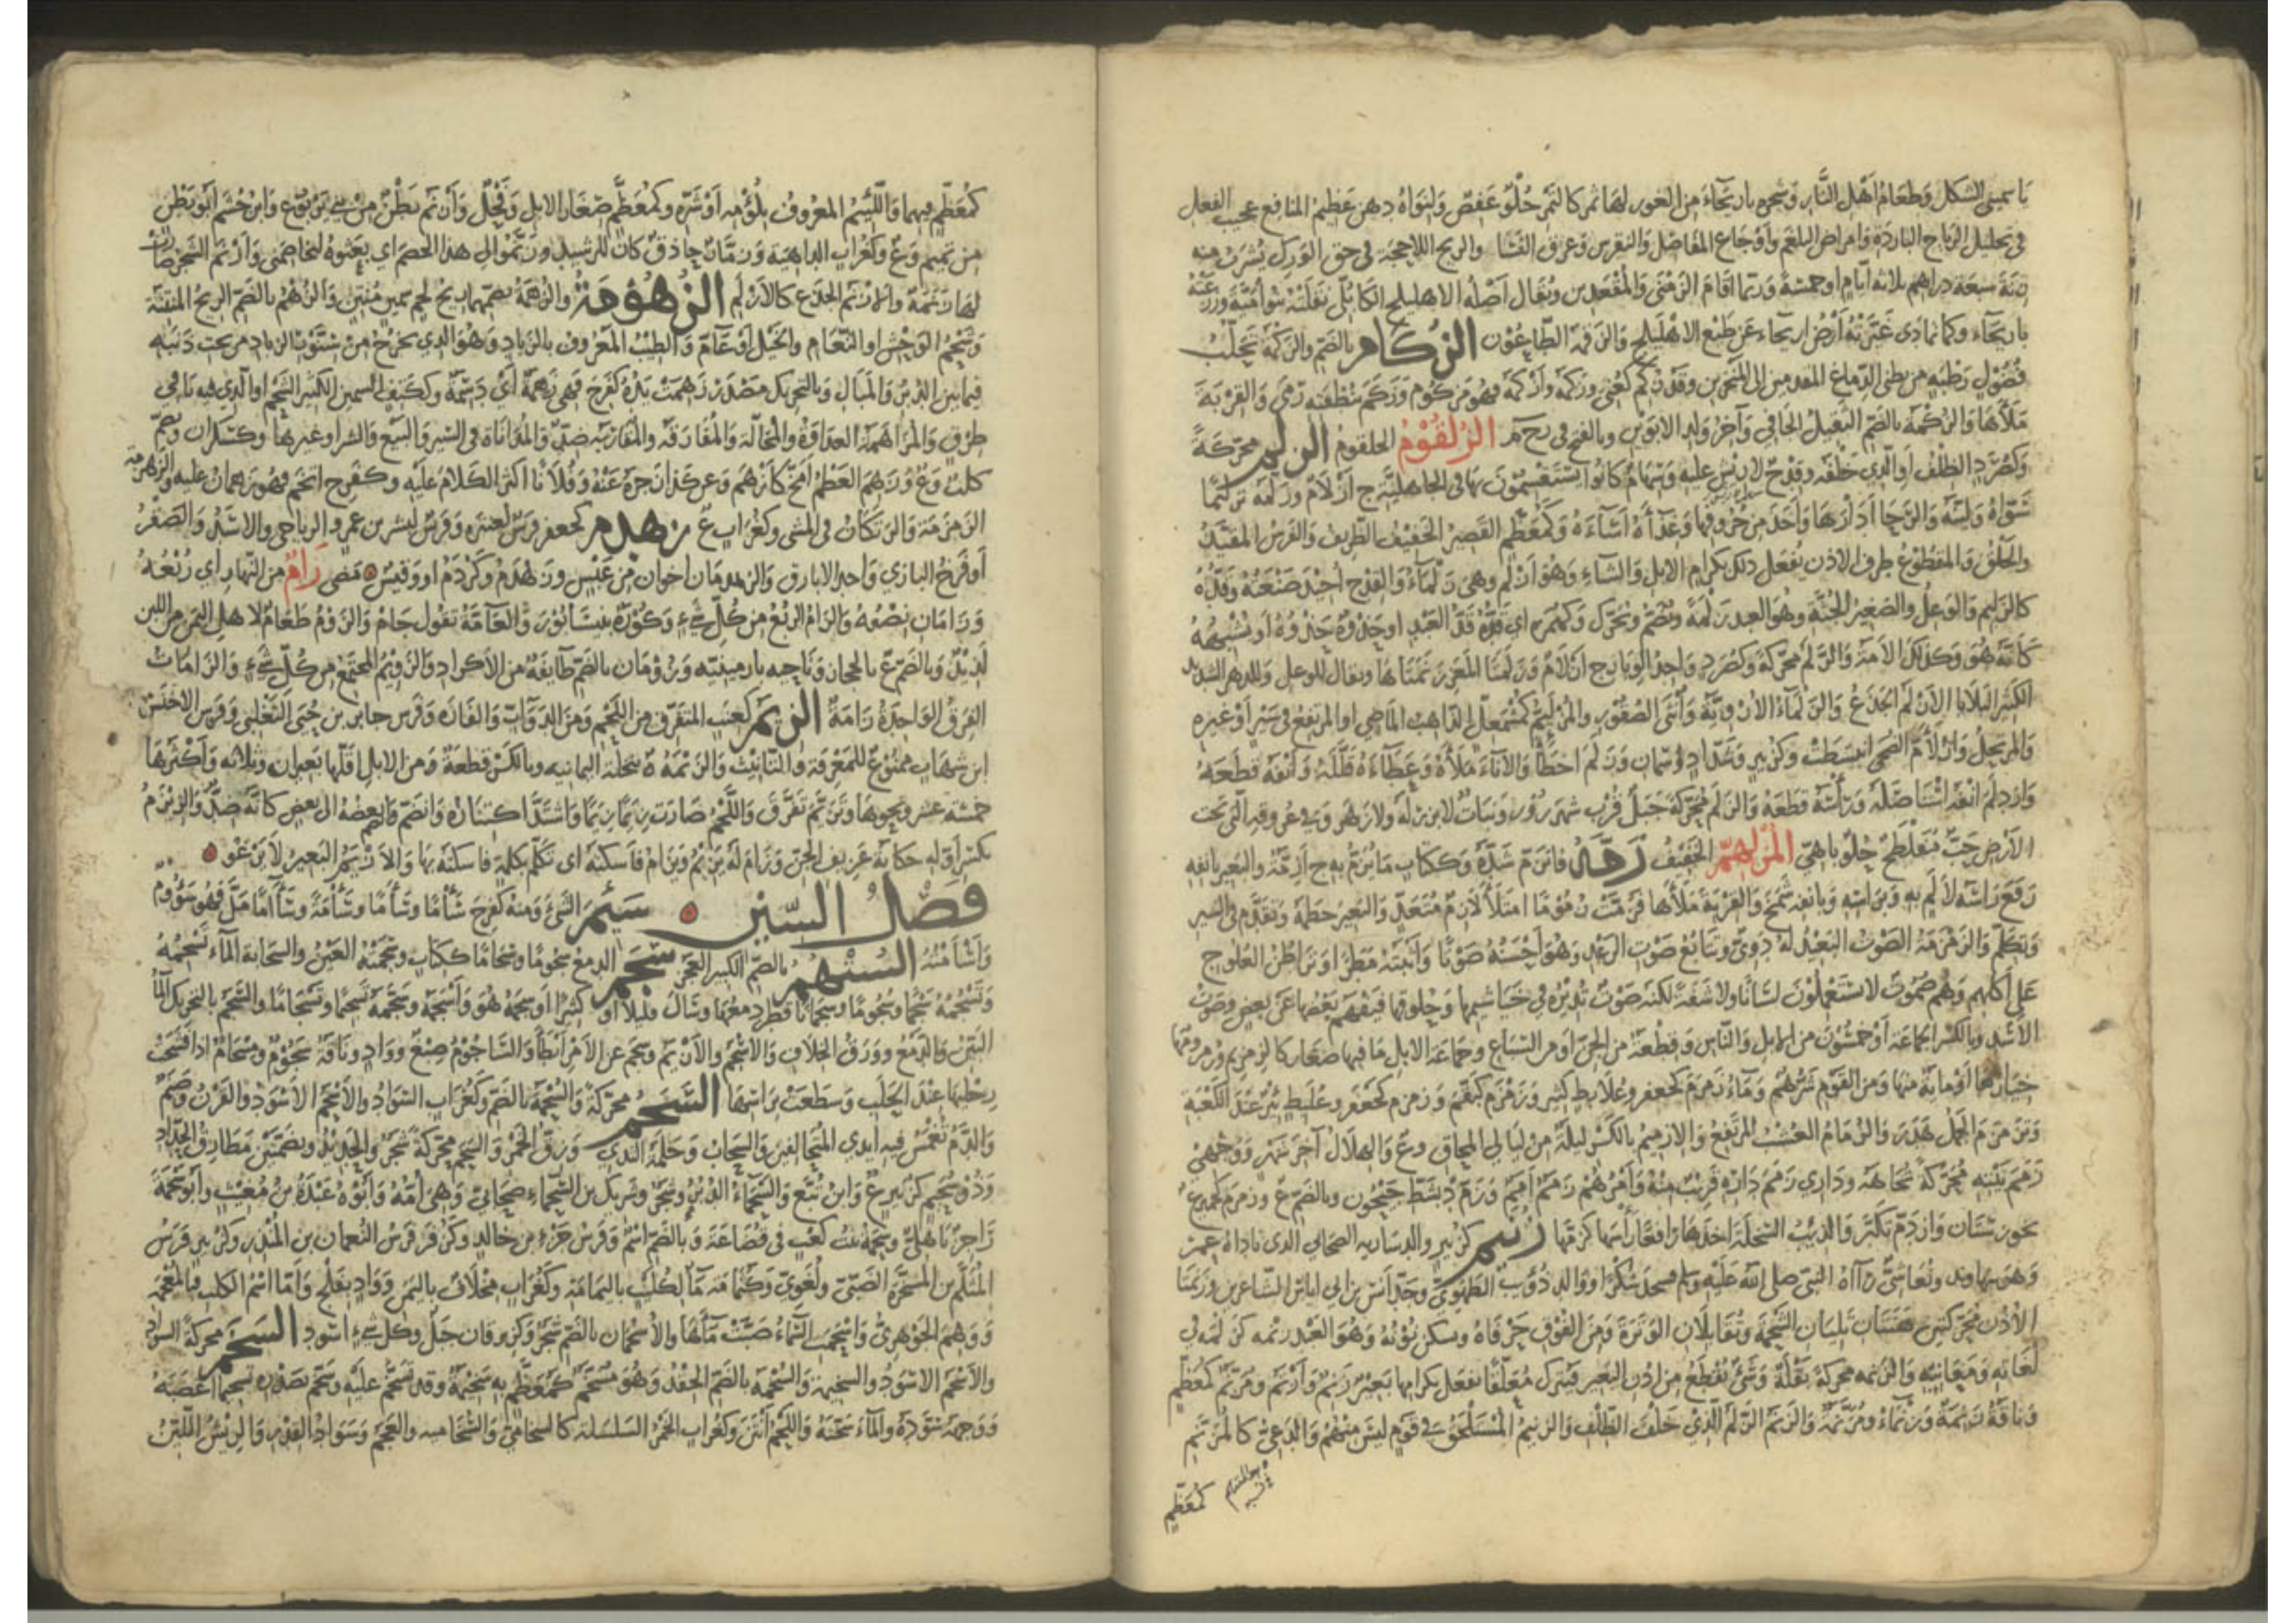 ياسميني الشكل وطعام أهل النار وشجره باريحاء من الغور لها ثمر كالتمر حلو عفص ولنواه دهن عظيم المنافع عجيب الفعل
في تحليل الرياح الباردة وامراض البلغم واوجاع المفاصل والنقرس وعرق النسا والريح اللاحجة في حق الورك يشرب منه
زنة سبعة دراهم ثلاثه أيام او خمسة وربما اقام الزمنى والمقعدين ويقال اصله الاهليلج الكابلي نقلته بنوامية وزرعته
باريحاء ولما تمادى غيرته ارض اريحاء عن طبع الاهليلج والزقمة الطاعون الزكام بالضم والزكمة تحلب
فضول رطبه من بطني الدماغ المقدمين الى المنخرين وقد زكم كعني وزكمه وازكمه فهو مزكوم وزكم بنطفته رمى والقربة
ملأها والزكمة بالضم الثقيل الجافي وآخر ولد الابوين وبالفتح في رحم الزلقوم الحلقوم الزلم محركة
وكصرد الظلف او الذي خلفه وقدح لا ريش عليه وسهام كانوا يستقسمون بها في الجاهلية ج ازلام وزلمه تزليما
سواه ولينه والرحا ادارها واخذ من حروفها وغذاه اساءه وكمعظم القصير الخفيف الظريف والفرس المقتدر
والخلق والمقطوع طرف الاذن يفعل ذلك بكرام الابل والشاء وهو ازلم وهي زلماء والقدح اجيد صنعته وقده
كالزليم والوعل والصغير الجثة وهو العبد زلمة ويضم ويحرك وكهمزة اي قده قد العبد او حذوه حذوه او يشبهه
كانه هو وكذلك الامة والزلم محركة وكصرد واحد الوبار ج ازلام وزلمتا العنز زنمتاها ويقال للوعل وللدهر الشديد
الكثير البلايا الازلم الجذع والزلماء الاروية وانثى الصقور والمزلئم كمشمعل الذاهب الماضي او المرتفع في سير او غيره
والمرتحل وازلأم الضحى انبسطت وكزبير وشداد اسمان وزلم اخطأ والاناء ملأه وعطاءه قلله وانفه قطعه
وازدلم انفه استاصله وراسه قطعه والزلم محركة جبل قرب شهرزور ونبات لا بزر له ولا زهر وفي عروقه التي تحت
الأرض حب مفلطح حلو باهي المزلهم الخفيف زمه فانزم شده وككتاب ما يزم به ج ازمة والبعير بانفه
رفع راسه لألم به وبراسه وبانفه شمخ والقربة ملأها فزمت زموما امتلأ لازم متعد والبعير خطمه وتقدم في السير
وتكلم والزمزمة الصوت البعيد له دوي وتتابع صوت الرعد وهو احسنه صوتا واثبته مطرا وتراطن العلوج
على اكلهم وهم صموت لا يستعملون لسانا ولا شفة لكنه صوت تديره في خياشيمها وحلوقها فيفهم بعضها عن بعض وصوت
الاسد وبالكسر الجماعة او خمسون من الابل والناس وقطعة من الجن او من السباع وجماعة الابل ما فيها صغار كالزمزيم وزمزومها
خيارها او مائة منها ومن القوم شرهم وماء زمزم كجعفر وعلابط كثير وزمزم كبقم وزمزم كجعفر وعلبط بئر عند الكعبة
وتزمزم الجمل هدر والزمام العشب المرتفع والازميم بالكسر ليلة من ليالي المحاق وع والهلال آخر شهر ووجهي
زمم بيته محركة تجاهه وداري زمم داره قريب منه وأمرهم زمم امم وزم د بشط جيحون وبالضم ع وزمزم كهدهد ع
بخوزستان وازدم تكبر والذئب السخلة اخذها رافعا رأسها كزمها زنيم كزبير والد سارية الصحابي الذي ناداه عمر
وهو بنهاوند ونغاشي رآه النبي صلى الله عليه وسلم فسجد شكرا ووالد ذؤيب الطهوي وجد انس بن ابي اياس الشاعرين وزنمتا
الأذن محركتين هنتان تليان الشحمة وتقابلان الوترة ومن الفوق حرفاه وسكن نونه وهو العبد زنمه كزلمه في
لغاته ومعانيه والزنمه محركة بقلة وشئ يقطع من اذن البعير فيترك معلقا يفعل بكرامها بعير زنم وازنم ومزنم كمعظم
وناقة زنمة وزنماء ومزنمة والزنم الزلم الذي خلف الظلف والزنيم المستلحق في قوم ليس منهم والدعي كالمزنم
كمعظم
كمعظم فيهما واللئيم المعروف بلؤمه او شره وكمعظم صغار الابل وفحل وازنم بطن من بني يربوع وابن جشم ابو بطن
من تميم وع وكغراب الداهية وزنام زمار حاذق كان للرشيد وزنموا لي هذا الخصم اي بعثوه ليخاصمني وازنم الشجر صارت
لها زنمة والازنم الجذع كالازلم الزهومة والزهمة بضمهما ريح لحم سمين منتن والزهم بالضم الريح المنتنة
وشحم الوحش او النعام والخيل او عام والطيب المعروف بالزباد وهو الذي يخرج من سنور الزباد من تحت ذنبه
فيما بين الدبر والمبال وبالتحريك مصدر زهمت يده كفرح فهي زهمة اي دسمة وككتف السمين الكثير الشحم او الذي فيه باقي
طرق والمزاهمة العداوة والمخالة والمفارقة والمقاربة ضد والمداناة في السير والبيع والشرا وغيرها وكسكران ويضم
كلب وع وزهم العظم امخ كازهم وعن كذا زجره عنه وفلانا اكثر الكلام عليه وكفرح اتخم فهو زهمان عليه والزهزمة
الزمزمة والزتكان في المشي وكغراب ع زهدم كجعفر فرس لعنترة وفرس لبشر بن عمرو الرياحي والاسد والصقر
او فرخ البازي واحد الابارق والزهدمان اخوان من عبس وزهدم وكردم او وقيس مضى زام من النهار أي ربعه
وزامان نصفه والزام الربع من كل شيء وكورة بنيسابور والعامة تقول جام والزوم طعام لاهل اليمن من اللبن
لذيذ وبالضم ع بالحجاز وناحيه بارمينيه وزومان بالضم طايفة من الاكراد والزويم المجتمع من كل شيء والزامات
الفرق الواحدة زامة الزيم كعنب المتفرق من اللحم ومن الدواب والغارة وفرس جابر بن حيي التغلبي وفرس الاخنس
ابن شهاب ممنوع للمعرفة والتانيث والزيمة ة بنخلة اليمانيه وبالكسر قطعة ومن الابل اقلها بعيران وثلاثه واكثرها
خمسة عشر ونحوها وتزيم تفرق واللحم صارت زيما زيما واشتد اكتنازه وانضم بعضه الى بعض كانه ضد والزيزيم
بكسر اوله حكاية عزيف الجن وزام له يزيم ويزام فاسكته اي تكلم بكلمة فاسكته بها والازيم البعير لا يرغو
فصل السين سئم الشيء ومنه كفرح سأما وسأما وسآمة وسآما مل فهو سؤوم
واسأمته السنهم بالضم الكبير العجز سجم الدمع سجوما وسجاما ككتاب وسجمته العين والسحابة الماء تسجمه
وتسجمه سجما وسجوما وسجمانا قطر دمعها وسال قليلا او كثيرا وسجمه هو واسجمه وسجمه تسجيما وتسجاما والسجم بالتحريك الماء
والدمع وورق الخلاف والاسجم والازيم وسجم عن الأمر ابطأ والساجوم صبغ وواد وناقة سجوم ومسجام اذا فشحت
رجليها عند الحلب وسطعت براسها السحم محركة والسحمة بالضم وكغراب السواد والاسحم الاسود والقرن وصنم
والدم تغمس فيه أيدي المتحالفين والسحاب وحلمة الثدي وزق الخمر والسحم محركة شجر والحديد وبضمتين مطارق الحداد
وذو سحيم كزبير ع وابن تبع والسحماء الدبر وشجر وشريك بن السحماء صحابي وهي أمه وابوه عبدة بن معتب وابو سحمة
راجز باهلي وسحمة بنت كعب في قضاعة وبالضم اسم وفرس جزء بن خالد وكزفر فرس النعمان بن المنذر وكزبير فرس
المثلم بن المسحرة الضبي ولغوي وكثمامة ماء لكلب باليمامة وكغراب مخلاف باليمن وواد بفلج واما اسم الكلب فبالمعجمة
ووهم الجوهري واسحمت السماء صبت ماءها والاسحمان بالضم شجر وكزعفران جبل وكل شيء اسود السخم محركة السواد
والاسخم الاسود والسخيمة والسخمة بالضم الحقد وهو مسخم كمعظم به سخيمة وقد تسخم عليه وسخم بصدره تسخيما اغضبه
ووجهه سوده والماء سخنه واللحم انتن وكغراب الخمر السلسلة كالسخامي والسخامية والفحم وسواد القدر والريش اللين